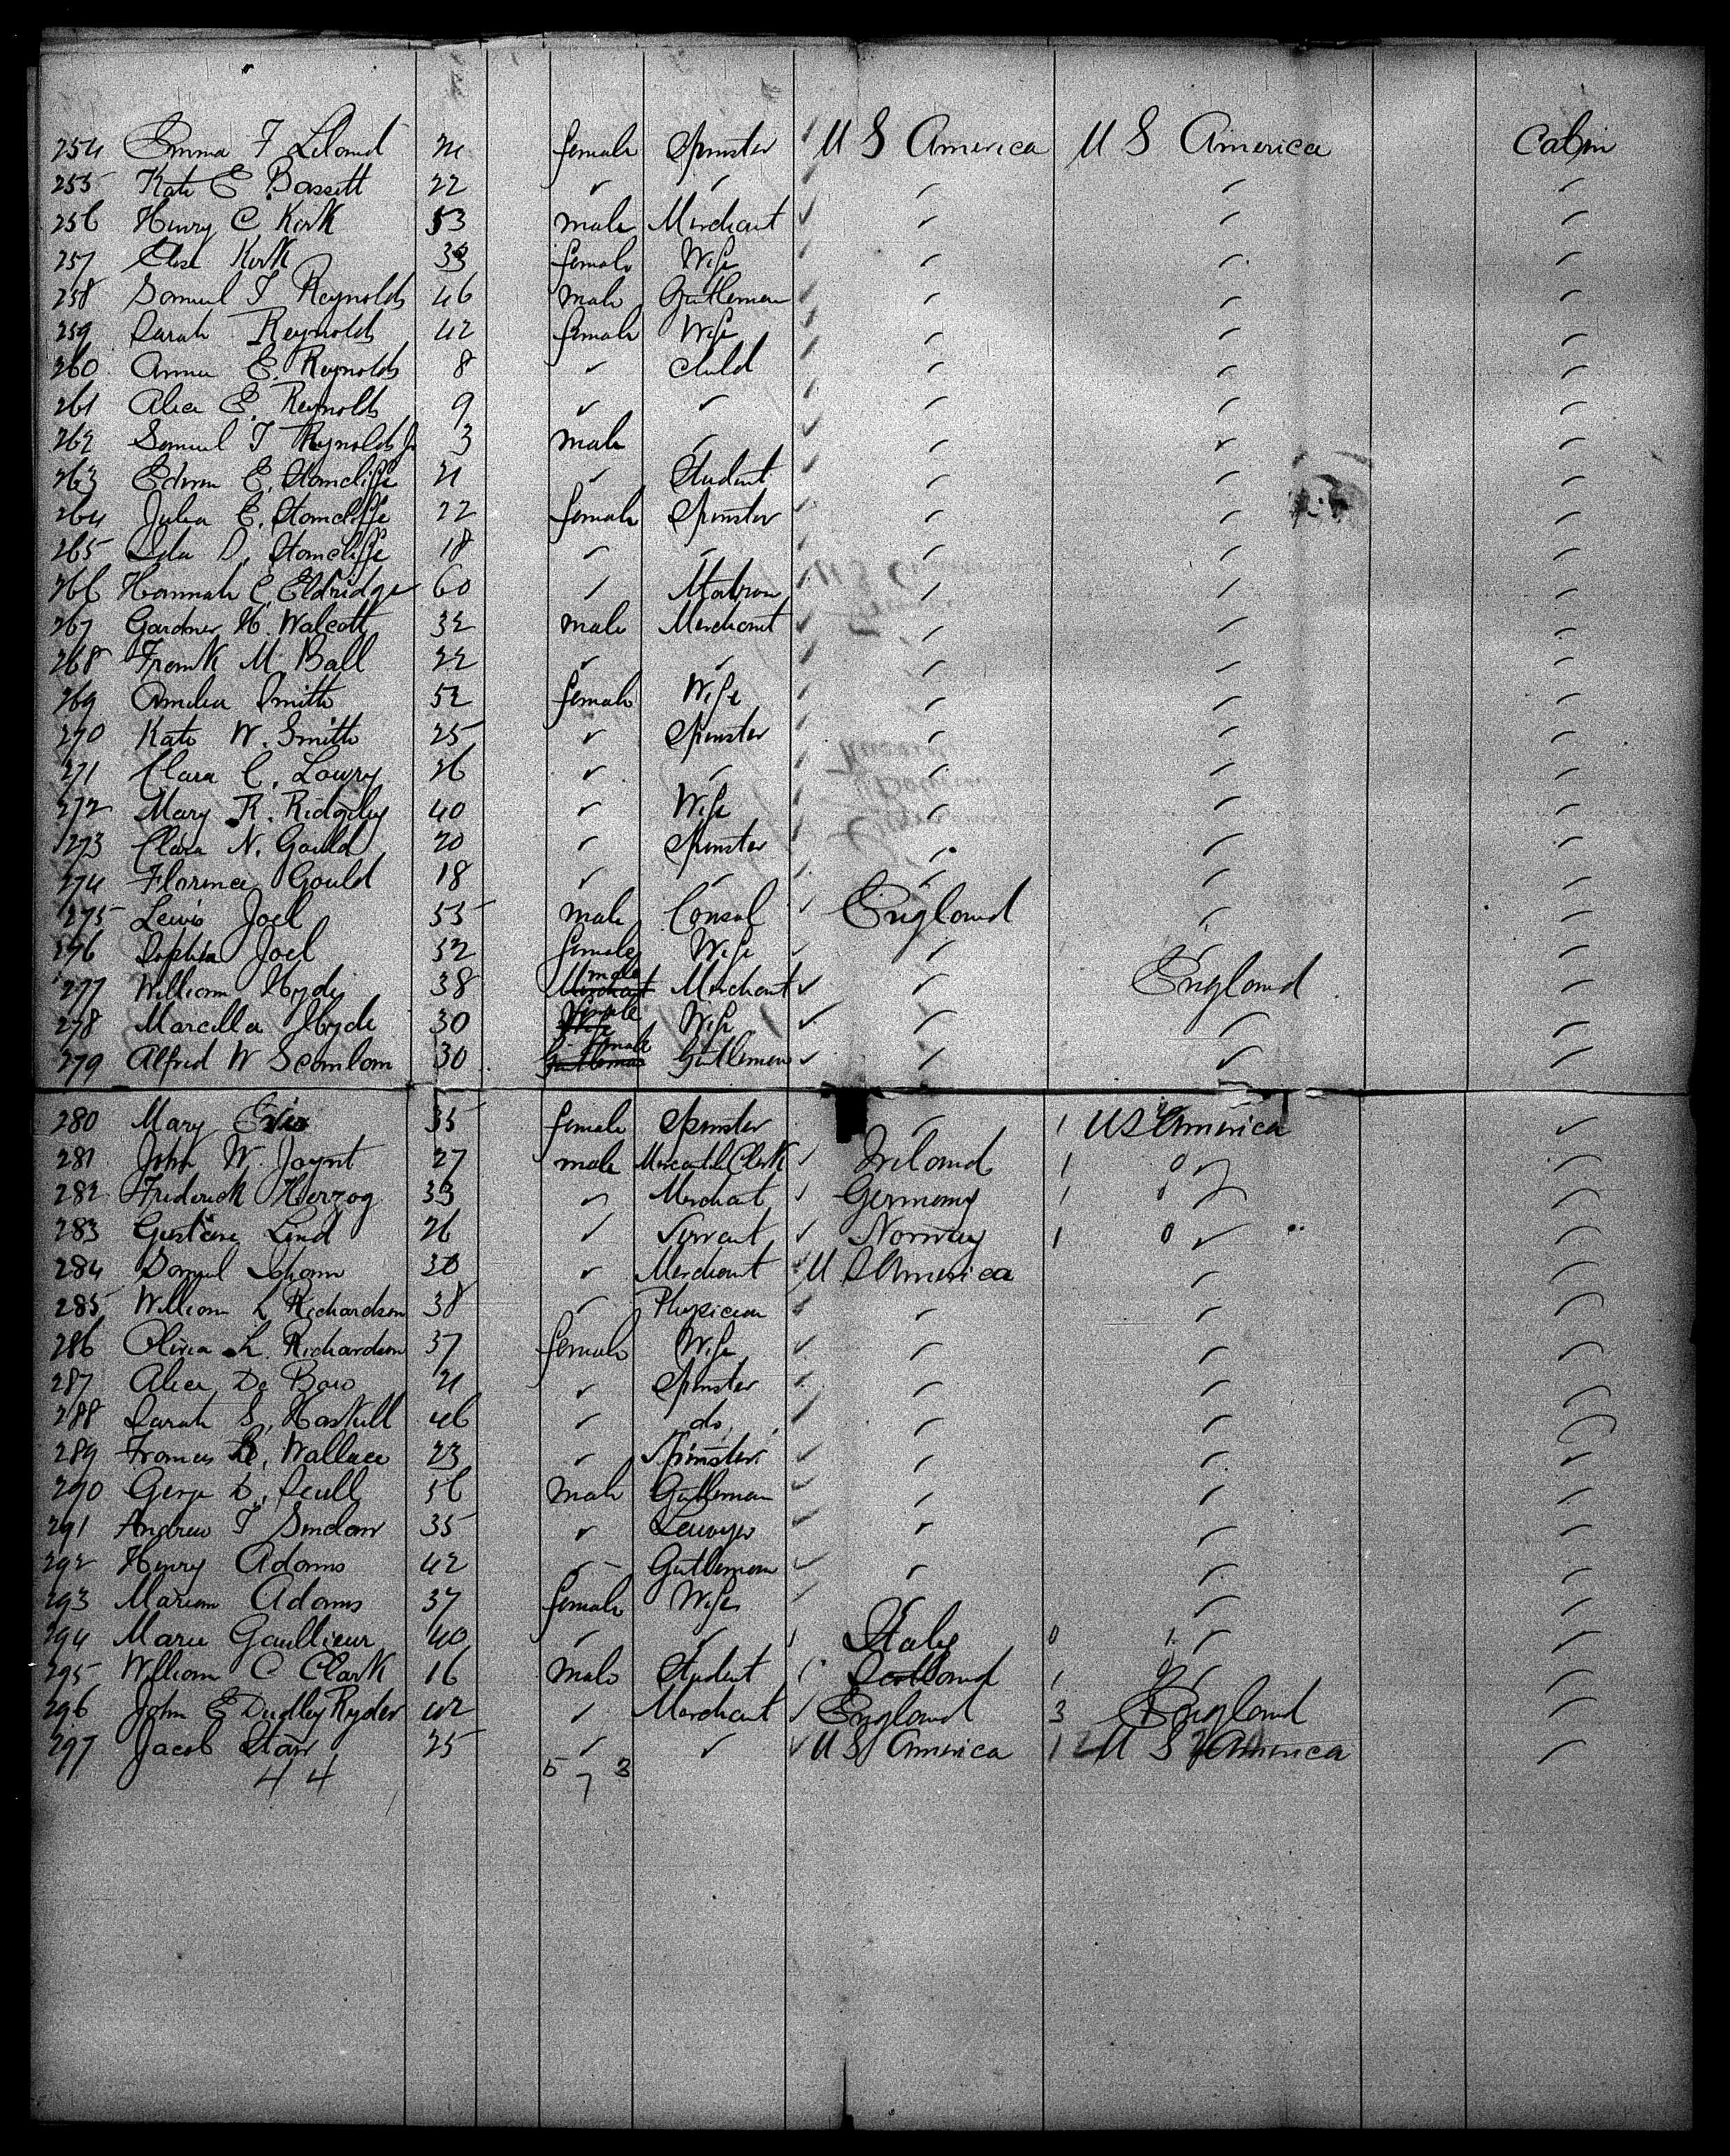 254 Emma F Leland 21 female Spinster U S America U S America Cabin
255 Kate E Bassett 22 ✓ ✓ ✓ ✓ ✓
256 Henry C. Kirk 53 male Merchant ✓ ✓ ✓ ✓
257 Kirk female Wife ✓ ✓ ✓
258 Samuel T Reynolds 46 male Gentleman ✓ ✓ ✓ ✓
259 Sarah Reynolds 42 female Wife ✓ ✓ ✓ ✓
260 Annie E. Reynolds 8 ✓ Child ✓ ✓ ✓ ✓
261 Alice E. Reynolds 9 ✓ ✓ ✓ ✓ ✓ ✓
262 Samuel T Reynolds Jr 3 male ✓ ✓ ✓ ✓ ✓
263 Edwin E. Stancliffe 21 ✓ Student ✓ ✓ ✓ ✓
264 Julia E. Stancliffe 22 female Spinster ✓ ✓ ✓
265 Lela D. Stancliffe 18 ✓ ✓ ✓ ✓ ✓
266 Hannah C. Eldridge 60 ✓ Matron ✓ ✓ ✓
267 Gardner H. Walcott 32 male Merchant ✓ ✓ ✓ ✓
268 Frank M. Ball 22 ✓ ✓ ✓ ✓ ✓ ✓
269 Amelia Smith 52 female Wife ✓ ✓ ✓ ✓
270 Kate W. Smith 25 ✓ Spinster ✓ ✓ ✓
271 Clara C. Lowry 26 ✓ ✓ ✓ ✓ ✓
272 Mary R. Ridgeley 40 ✓ Wife ✓ ✓ ✓
273 Clara N. Gould 20 ✓ Spinster ✓ ✓ ✓
274 Florence Gould 18 ✓ ✓ ✓ ✓ ✓
275 Lewis Joel 55 male Consul ✓ England ✓ ✓
276 Sophia Joel 52 female Wife ✓ ✓ ✓ ✓
277 William Hyde 38 Merchant male Merchant ✓ ✓ England ✓
278 Marcella Hyde 30 Wife female Wife ✓ ✓ ✓ ✓
279 Alfred W Scanlan 30 Gentleman male Gentleman ✓ ✓ ✓ ✓
280 Mary 35 female Spinster ✓ 1 US America ✓
281 John W. Joynt 27 male Mercantile Clerk ✓ Ireland 1 0 ✓ ✓
282 Frederick Herzog 33 ✓ Merchant ✓ Germany 1 ✓ ✓
283 Gustave Lind 26 ✓ Servant ✓ Norway 1 0 ✓ ✓
284 Samuel 30 ✓ Merchant ✓ U S America ✓ ✓
285 William L Richardson 38 ✓ Physician ✓ ✓ ✓ ✓
286 Olivia L. Richardson 37 female Wife ✓ ✓ ✓ ✓
287 Alice De Bow 21 ✓ Spinster ✓ ✓ ✓
288 Sarah S. Haskell 46 ✓ do ✓ ✓ ✓ ✓
289 Frances Wallace 23 ✓ Spinster ✓ ✓ ✓ ✓
290 George D. Scull 56 male Gentleman ✓ ✓ ✓ ✓
291 Andrew T Sinclair 35 ✓ Lawyer ✓ ✓ ✓ ✓
292 Henry Adams 42 ✓ Gentleman ✓ ✓ ✓ ✓
293 Marian Adams 37 female Wife ✓ ✓ ✓ ✓
294 Marie Gaullieur 40 ✓ ✓ 1 Italy 0 1 ✓ ✓
295 William C Clark 16 male Student 1 Scotland 1 0 ✓ ✓
296 John E Dudley Ryder 42 ✓ Merchant ✓ England 3 England ✓
297 Jacob Starr 25 ✓ ✓ ✓ U S America 12 U S America ✓
44 5 7 3